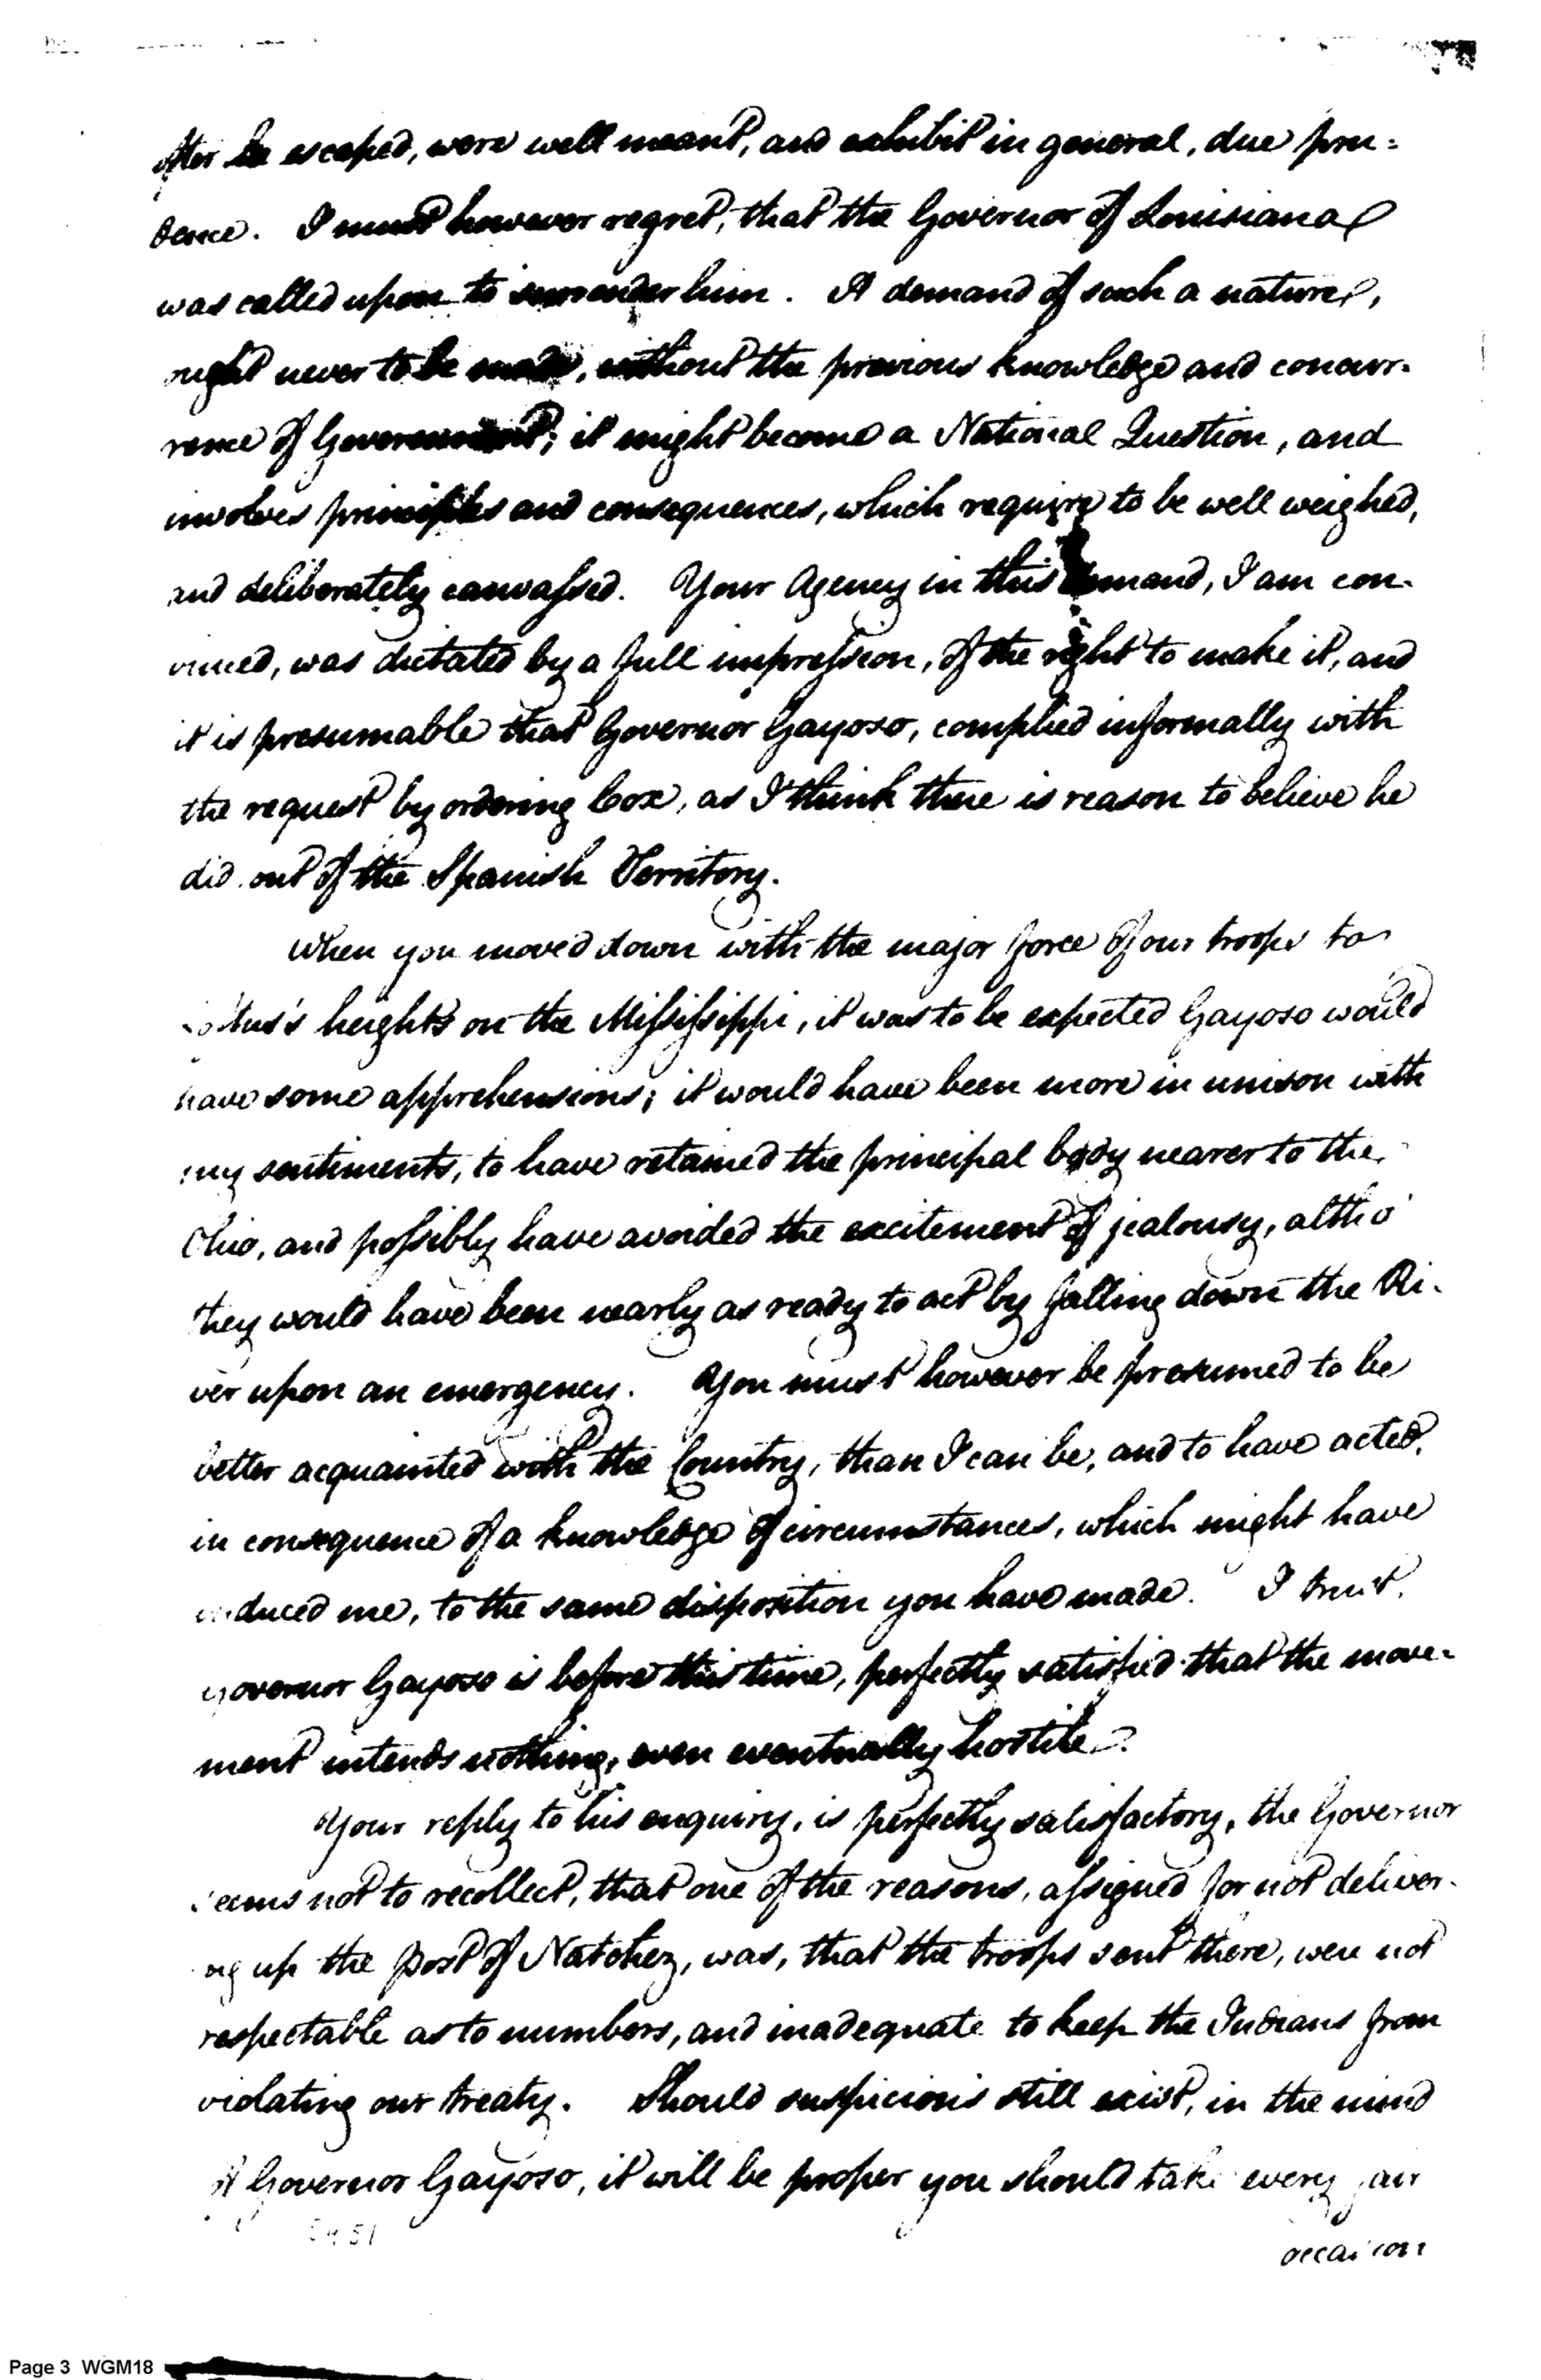 after he escaped, were well meant, and exhibit in general, due pru=
dence. I must however regret, that the Governor of Louisiana
was called upon to surrender him. A demand of such a nature,
ought never to be made, without the previous knowledge and concur-
rence of Government; it might become a National Question, and
involves principles and consequences, which require to be well weighed,
and deliberately canvassed. Your Agency in this demand, I am con-
vinced, was dictated by a full impression, of the right to make it, and
it is presumable that Governor Gayoso, complied informally with
the request by ordering Cox, as I think there is reason to believe he
did out of the Spanish Territory.
When you moved down with the major force of our troops to
heights on the Mississippi, it was to be expected Gayoso would
have some apprehensions; it would have been more in unison with
my sentiments, to have retained the principal body nearer to the
Ohio, and possibly have avoided the excitement of jealousy, altho'
they would have been nearly as ready to act by falling down the Ri-
ver upon an emergency. You must however be presumed to be
better acquainted with the Country, than I can be, and to have acted,
in consequence of a knowledge of circumstances, which might have
induced me, to the same disposition you have made. I trust,
governor Gayoso is before this time, perfectly satisfied that the move=
ment intends nothing, even eventually hostile.
Your reply to his enquiry, is perfectly satisfactory, the Governor
seems not to recollect, that one of the reasons, assigned for not deliver-
ing up the post of Natchez, was, that the troops sent there, were not
respectable as to numbers, and inadequate to keep the Indians from
violating our treaty. Should suspicions still exist, in the mind
of Governor Gayoso, it will be proper you should take every fair
occasion
Page 3 WGM18